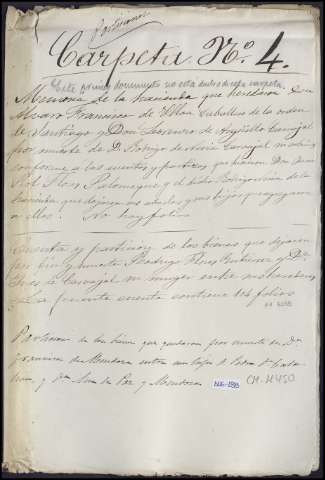 Particiones
Carpeta N.º 4.
Este primer documento no está dentro de esta carpeta.
Memoria de la hacienda que heredaron Don
Alvaro Francisco de Ulloa Caballero de la orden
de Santiago y Don Lorenzo de Argüello Carvajal
por muerte de D. Rodrigo de Carvajal
conforme a las cuentas y particion que hicieron Don
Flores Palomeque y el
hacienda que dejaron sus abuelos y sus hijos que
en ellas. No hay folios
Cuenta y particion de los bienes que dejaron
por fin y muerte Rodrigo Flores Gutierrez y D.ª
Ines de Carvajal su mujer entre sus herederos
La presente cuenta contiene 116 folios
Particion de los bienes que quedaron por muerte de D.ª
Francisca de Mendoza entre sus hijos D. Pedro
y D.ª Ana de Paz y Mendoza
CM-H450